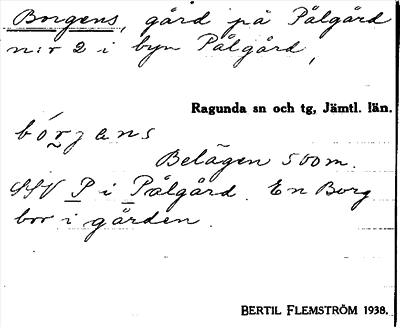 Borgens, gård på Pålgård
n:r 2 i byn Pålgård,
Ragunda sn och tg, Jämtl. län.
bórgans
Belägen 500 m.
SSV P i Pålgård. En Borg
bor i gården.
BERTIL FLEMSTRÖM 1938.